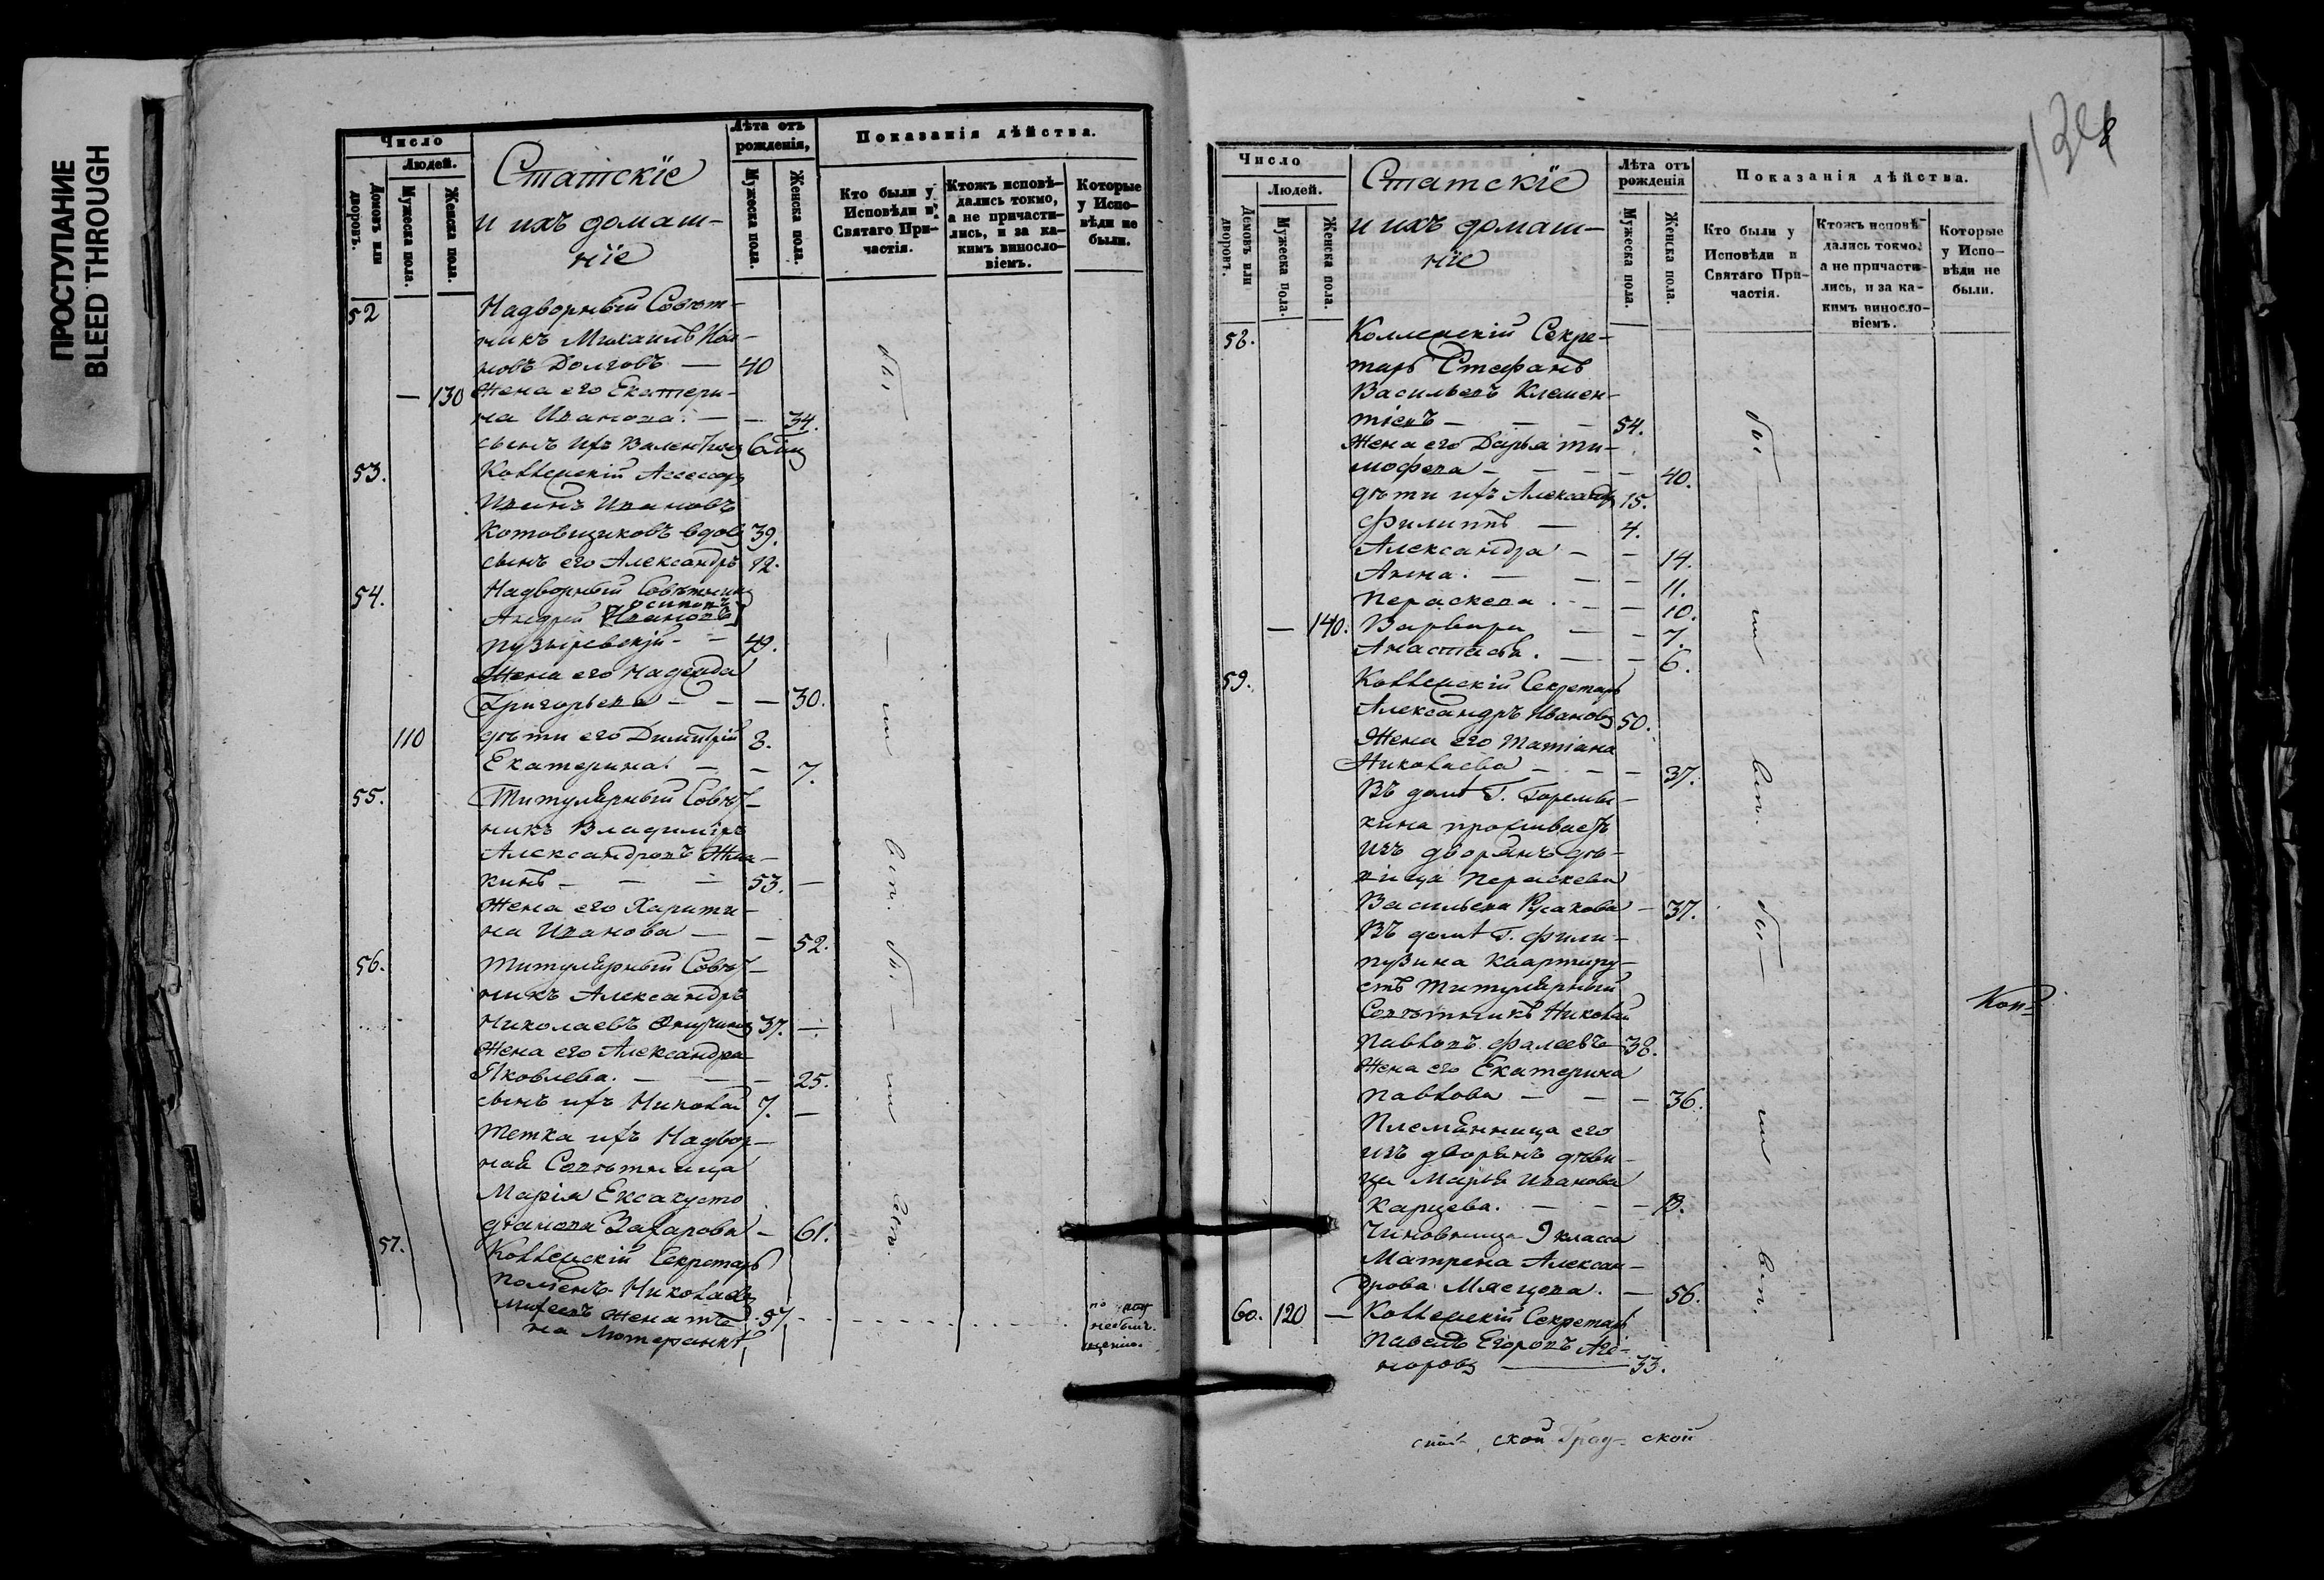 ПРОСТУПАНИЕ
BLEED THROUGH
Число
Людей.
Домовъ или дворовъ.
Мужеска пола.
Женска пола.
Статскіе
и ихъ домаш-
ніе
Лѣта отъ рожденія,
Мужеска пола.
Женска пола.
Показанія дѣйства.
Кто были у Исповѣди и Святаго При-частія.
Ктожъ исповѣ-дались токмо, а не причасти-лись, и за ка-кимъ виносло-віемъ.
Которые у Испо-вѣди не были.
52 Надворный Совѣт-
никъ Михаилъ
новъ Долговъ — 40
— 130 Жена его Екатери-
на Иванова. — — 34.
сынъ ихъ Валентинъ
53. Коллежскій Ассесоръ
Иванъ Ивановъ
Котовщиковъ вдовъ 39.
сынъ его Александръ 12.
54. Надворный Совѣтникъ
Осиповъ
Андрей [Ивановъ]
Пузыревскій — 49.
Жена его Надежда
Григорьева — — — 30.
110 дѣти его Димитрій 8.
Екатерина — — 7.
55. Титулярный Совѣт-
никъ Владиміръ
Александровъ
кинъ — — — 53. —
Жена его Харити-
на Иванова — — 52.
56. Титулярный Совѣт-
никъ Александръ
Николаевъ 37. —
Жена его Александра
Яковлева. — — — 25.
сынъ ихъ Николай 7. —
Тетка ихъ Надвор-
ная Совѣтница
Марія Ексакусто
діанова Захарова — 61.
57. Коллежскій Секретарь
Николаевъ
Михеевъ женатъ 57.
на Лютеранкѣ
по
небыт-
щенію.
бы — — ли вси. бы — ли вси.
138
Число
Людей.
Домовъ или дворовъ.
Мужеска пола.
Женска пола.
Статскіе
и ихъ домаш-
ніе
Лѣта отъ рожденія
Мужеска пола.
Женска пола.
Показанія дѣйства.
Кто были у Исповѣди и Святаго При-частія.
Ктожъ исповѣ-дались токмо, а не причасти-лись, и за ка-кимъ виносло-віемъ.
Которые у Испо-вѣди не были.
58. Коллежскій Секре-
тарь Стефанъ
Васильевъ Клемен-
тіевъ — — — 54.
Жена его Дарья Ти-
мофева — — — — 40.
дѣти ихъ Александръ 15.
Филиппъ — 4.
Александра — — 14.
Анна. — — — 11.
Параскева. — — 10.
— 140. Варвара — — 7.
Анастасія. — — 6.
59. Коллежскій Секретарь
Александръ Ивановъ 50.
Жена его Татіана
Николаева — — — 37.
Въ домѣ Г. Горемы-
кина проживаетъ
изъ дворянъ дѣ-
вица Параскева
Васильева Русакова — 37.
Въ домѣ Г. Фили-
пузина квартиру-
етъ Титулярный
Совѣтникъ Николай
Павловъ Фалеевъ 38.
Жена его Екатерина
Павлова — — — 36.
Племянница его
изъ дворянъ дѣви-
ца Марья Иванова
Карцева. — — — 13.
Чиновница 9 класса
Матрена Алексан-
дрова Мясцова. — 56.
60. 120 — Коллежскій Секретарь
Павелъ Егоровъ
норовъ — 33.
бы — ли вси. бы — ли вси.
Коп-
ской Град- ской